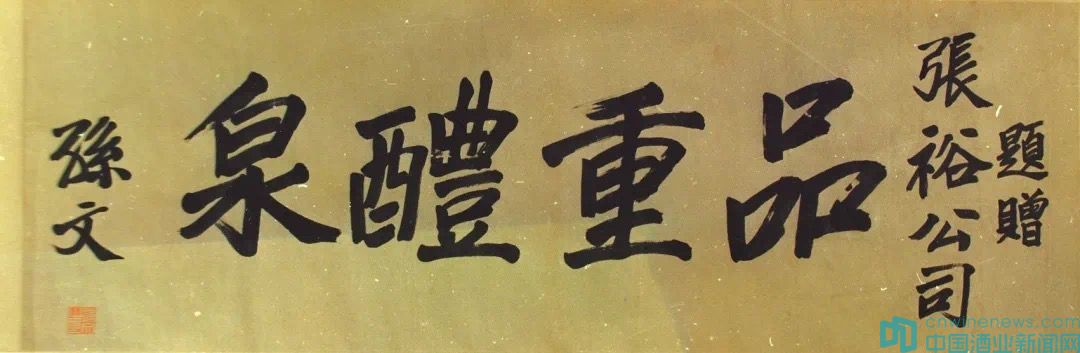 題贈
張裕公司
品重醴泉
孫文
cnwinenews.com
中国酒业新闻网